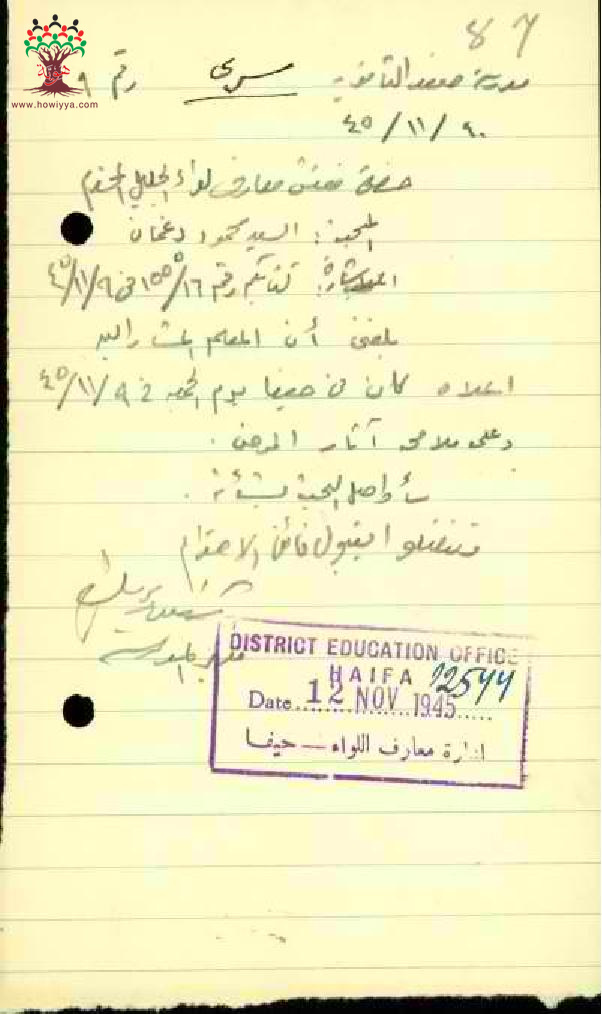 87
www.howiyya.com
مدرسة صفد الثانوية سري رقم ٩
٩٠/١١/٤٥
حضرة مفتش معارف لواء الجليل المحترم
السيد محمود دغمان
كتابكم رقم ١٦/١٥٥٥ في ٩/١١/٤٥
بلغني أن المعلم المشار اليه
اعلاه كان في حيفا يوم الجمعة في ٩/١١/٤٥
وعلى ملامحه آثار المرض.
سأواصل البحث بشأنه.
تفضلوا بقبول فائق الاحترام
DISTRICT EDUCATION OFFICE
HAIFA 12544
Date 12 NOV 1945
ادارة معارف اللواء — حيفا